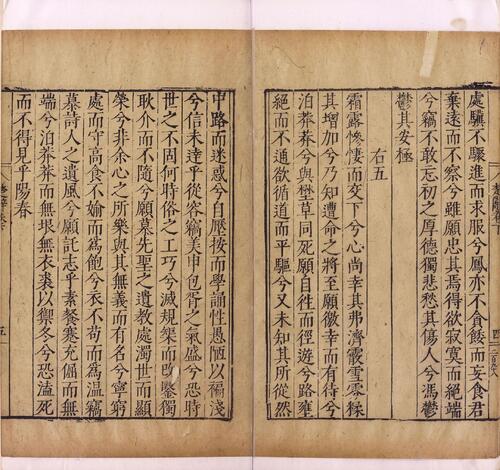 處驥不驟進而求服兮鳳亦不貪餧而妄食君
棄遠而不察兮雖願忠其焉得欲寂寞而絕端
兮竊不敢忘初之厚德獨悲愁其傷人兮馮鬱
鬱其安極
右五
霜露慘悽而交下兮心尚幸其弗濟霰雪雰糅
其增加兮乃知遭命之將至願徼幸而有待兮
泊莽莽兮與壄草同死願自徃而徑遊兮路壅
絕而不通欲循道而平驅兮又未知其所從然
四
中路而迷惑兮自壓按而學誦性愚陋以褊淺
兮信未達乎從容竊美申包胥之氣盛兮恐時
世之不固何時俗之工巧兮滅規榘而改鑿獨
耿介而不隨兮願慕先聖之遺教處濁世而顯
榮兮非余心之所樂與其無義而有名兮寧窮
處而守高食不媮而為飽兮衣不苟而為溫竊
慕詩人之遺風兮願託志乎素餐蹇充倔而無
端兮泊莽莽而無垠無衣裘以禦冬兮恐溘死
而不得見乎陽春
五